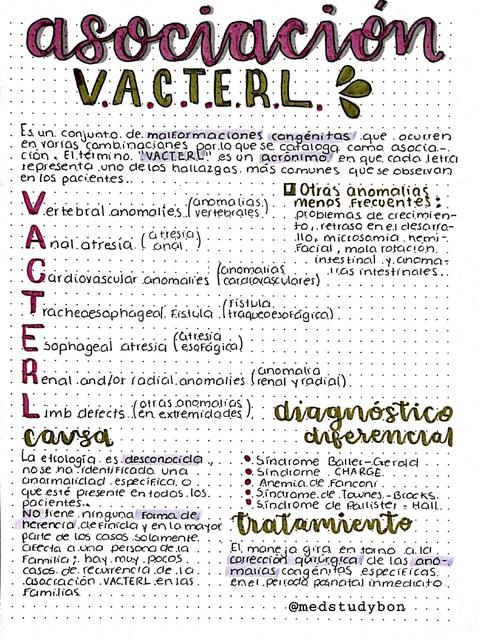 asociación
V.A.C.T.E.R.L.
Es un conjunto de malformaciones congénitas que ocurren
en varias combinaciones por lo que se cataloga como asocia-
ción. El término "VACTERL" es un acrónimo en que cada letra
representa uno de los hallazgos más comunes que se observan
en los pacientes.
Vertebral anomalies (anomalías vertebrales)
Anal atresia (atresia anal)
Cardiovascular anomalies (anomalías cardiovasculares)
Tracheoesophageal Fistula (Fístula traqueoesofágica)
Esophageal atresia (atresia esofágica)
Renal and/or radial anomalies (anomalía renal y radial)
Limb defects (otras anomalías en extremidades)
Otras anomalías
menos frecuentes:
problemas de crecimien-
to, retraso en el desarro-
llo, microsomía hemi-
facial, mala rotación
intestinal y anoma-
lías intestinales.
causa
La etiología es desconocida,
no se ha identificado una
anormalidad específica o
que esté presente en todos los
pacientes.
No tiene ninguna forma de
herencia definida y en la mayor
parte de los casos solamente
afecta a una persona de la
Familia; hay muy pocos
casos de recurrencia de la
asociación VACTERL en las
familias.
diagnóstico
diferencial
Síndrome Baller-Gerold
Síndrome CHARGE
Anemia de Fanconi
Síndrome de Townes-Brocks
Síndrome de Pallister-Hall
tratamiento
El manejo gira en torno a la
corrección quirúrgica de las ano-
malías congénitas específicas
en el periodo posnatal inmediato.
@medstudybon